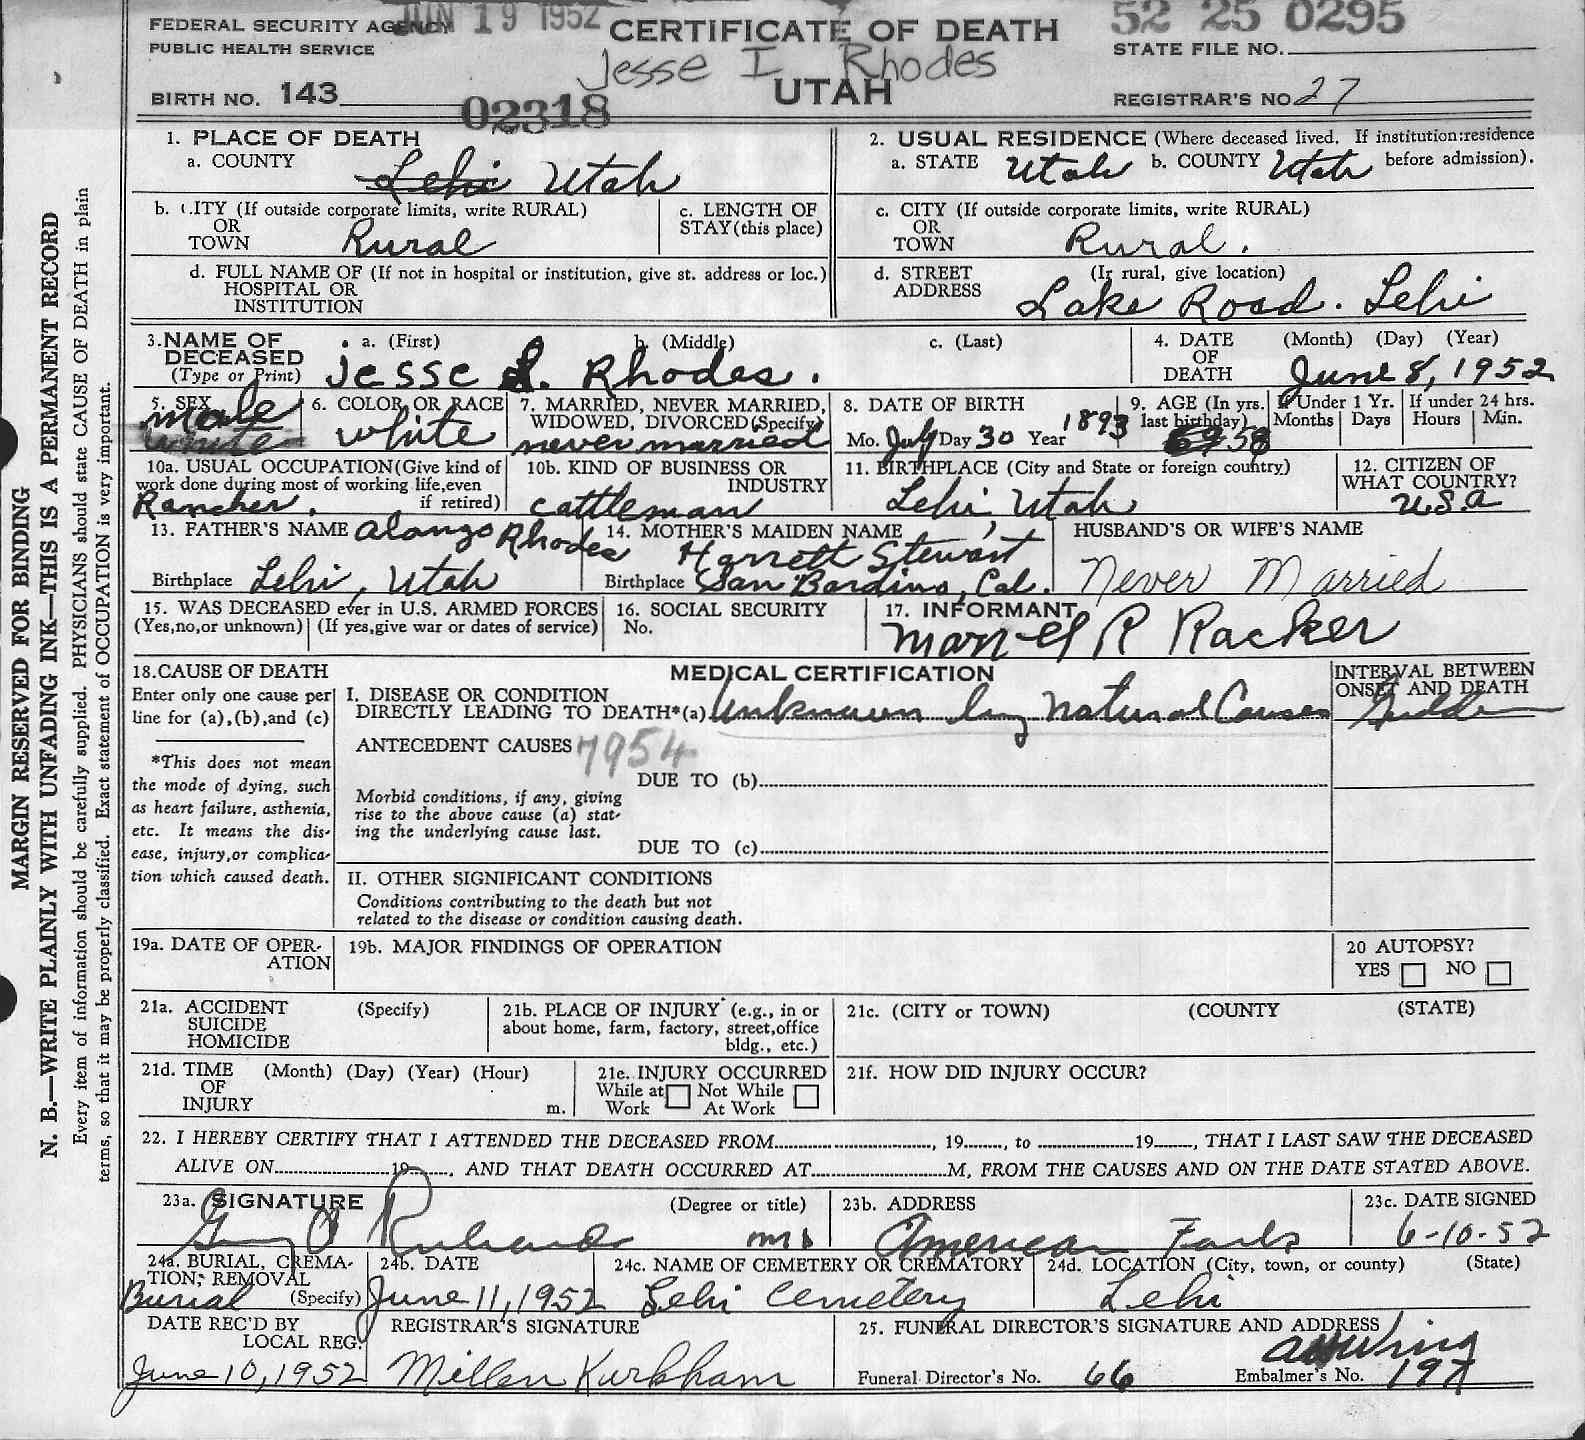 JUN 19 1952
FEDERAL SECURITY AGENCY
PUBLIC HEALTH SERVICE
CERTIFICATE OF DEATH
52 25 0295
STATE FILE NO.
Jesse I Rhodes
BIRTH NO. 143
02318
UTAH
REGISTRAR'S NO. 27
1. PLACE OF DEATH
a. COUNTY
Lehi Utah
2. USUAL RESIDENCE (Where deceased lived. If institution: residence
a. STATE Utah b. COUNTY Utah before admission).
b. CITY (If outside corporate limits, write RURAL)
OR
TOWN Rural
c. LENGTH OF
STAY (this place)
c. CITY (If outside corporate limits, write RURAL)
OR
TOWN Rural.
d. FULL NAME OF (If not in hospital or institution, give st. address or loc.)
HOSPITAL OR
INSTITUTION
d. STREET (If rural, give location)
ADDRESS Lake Road. Lehi
3. NAME OF DECEASED
(Type or Print)
a. (First) b. (Middle) c. (Last)
Jesse I. Rhodes.
4. DATE OF DEATH
(Month) (Day) (Year)
June 8, 1952
5. SEX
male
white
6. COLOR OR RACE
white
7. MARRIED, NEVER MARRIED,
WIDOWED, DIVORCED (Specify)
never married
8. DATE OF BIRTH
Mo. July Day 30 Year 1893
9. AGE (In yrs.
last birthday)
58
If Under 1 Yr.
Months Days
If under 24 hrs.
Hours Min.
10a. USUAL OCCUPATION (Give kind of
work done during most of working life, even
if retired)
Rancher.
10b. KIND OF BUSINESS OR
INDUSTRY
cattleman
11. BIRTHPLACE (City and State or foreign country)
Lehi, Utah
12. CITIZEN OF
WHAT COUNTRY?
U.S.A
13. FATHER'S NAME Alonzo Rhodes
Birthplace Lehi, Utah
14. MOTHER'S MAIDEN NAME
Harrett Stewart
Birthplace San Bardino, Cal.
HUSBAND'S OR WIFE'S NAME
Never Married
15. WAS DECEASED ever in U.S. ARMED FORCES
(Yes, no, or unknown) (If yes, give war or dates of service)
16. SOCIAL SECURITY
No.
17. INFORMANT
R Racker
18. CAUSE OF DEATH
Enter only one cause per
line for (a), (b), and (c)
*This does not mean
the mode of dying, such
as heart failure, asthenia,
etc. It means the dis-
ease, injury, or complica-
tion which caused death.
MEDICAL CERTIFICATION
I. DISEASE OR CONDITION
DIRECTLY LEADING TO DEATH* (a) Unknown by Natural Causes
INTERVAL BETWEEN
ONSET AND DEATH
Sudden
ANTECEDENT CAUSES 7954
DUE TO (b)
Morbid conditions, if any, giving
rise to the above cause (a) stat-
ing the underlying cause last.
DUE TO (c)
II. OTHER SIGNIFICANT CONDITIONS
Conditions contributing to the death but not
related to the disease or condition causing death.
19a. DATE OF OPER-
ATION
19b. MAJOR FINDINGS OF OPERATION
20 AUTOPSY?
YES NO
21a. ACCIDENT (Specify)
SUICIDE
HOMICIDE
21b. PLACE OF INJURY (e.g., in or
about home, farm, factory, street, office
bldg., etc.)
21c. (CITY or TOWN) (COUNTY (STATE)
21d. TIME (Month) (Day) (Year) (Hour)
OF
INJURY m.
21e. INJURY OCCURRED
While at Not While
Work At Work
21f. HOW DID INJURY OCCUR?
22. I HEREBY CERTIFY THAT I ATTENDED THE DECEASED FROM , 19 , to 19 , THAT I LAST SAW THE DECEASED
ALIVE ON 19 , AND THAT DEATH OCCURRED AT M, FROM THE CAUSES AND ON THE DATE STATED ABOVE.
23a. SIGNATURE (Degree or title)
Guy Richards
23b. ADDRESS
American Fork
23c. DATE SIGNED
6-10-52
24a. BURIAL, CREMA-
TION, REMOVAL
Burial (Specify)
24b. DATE
June 11, 1952
24c. NAME OF CEMETERY OR CREMATORY
Lehi Cemetery
24d. LOCATION (City, town, or county) (State)
Lehi
DATE REC'D BY
LOCAL REG.
June 10, 1952
REGISTRAR'S SIGNATURE
Kirkham
25. FUNERAL DIRECTOR'S SIGNATURE AND ADDRESS
Wing
Funeral Director's No. 66
Embalmer's No. 197
MARGIN RESERVED FOR BINDING
N. B.—WRITE PLAINLY WITH UNFADING INK—THIS IS A PERMANENT RECORD
Every item of information should be carefully supplied. PHYSICIANS should state CAUSE OF DEATH in plain
terms, so that it may be properly classified. Exact statement of OCCUPATION is very important.